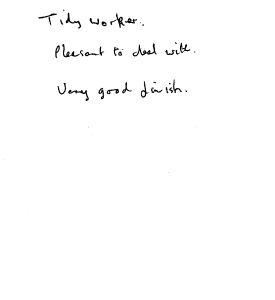 Tidy worker.
Pleasant to deal with.
Very good finish.